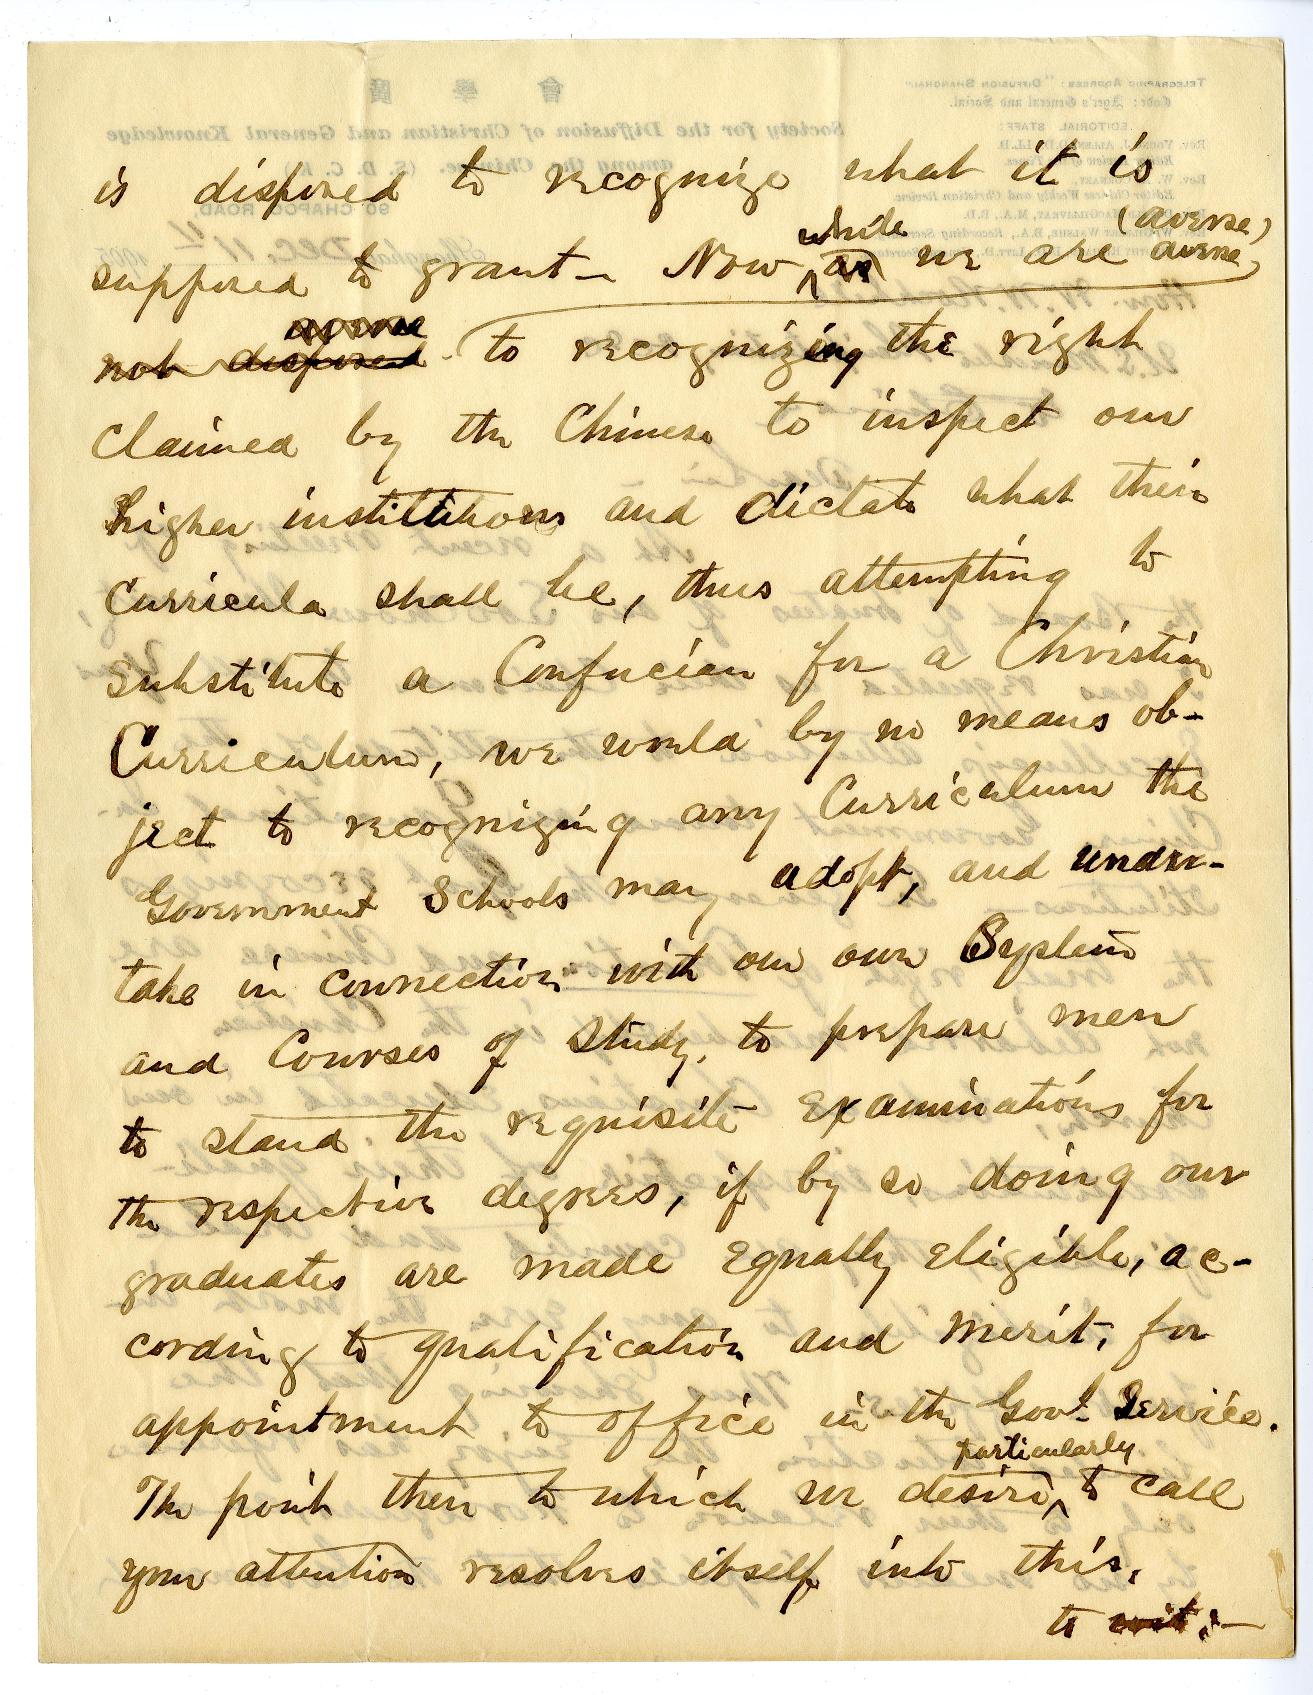 is disposed to recognize what it is
while (averse)
supposed to grant — Now, as we are averse
averse
not disposed to recognizing the right
claimed by the Chinese to inspect our
higher institutions and dictate what their
Curricula shall be, thus attempting to
substitute a Confucian for a Christian
Curriculum, we would by no means ob-
ject to recognizing any Curriculum the
Government Schools may adopt, and under-
take in connection with our own System
and Courses of Study, to prepare men
to stand the requisite Examinations for
the respective degrees, if by so doing our
graduates are made Equally Eligible, ac-
cording to qualification and Merit, for
appointment to office in the Govt. Service.
particularly
The point then to which we desire to call
your attention resolves itself into this,
to wit:—